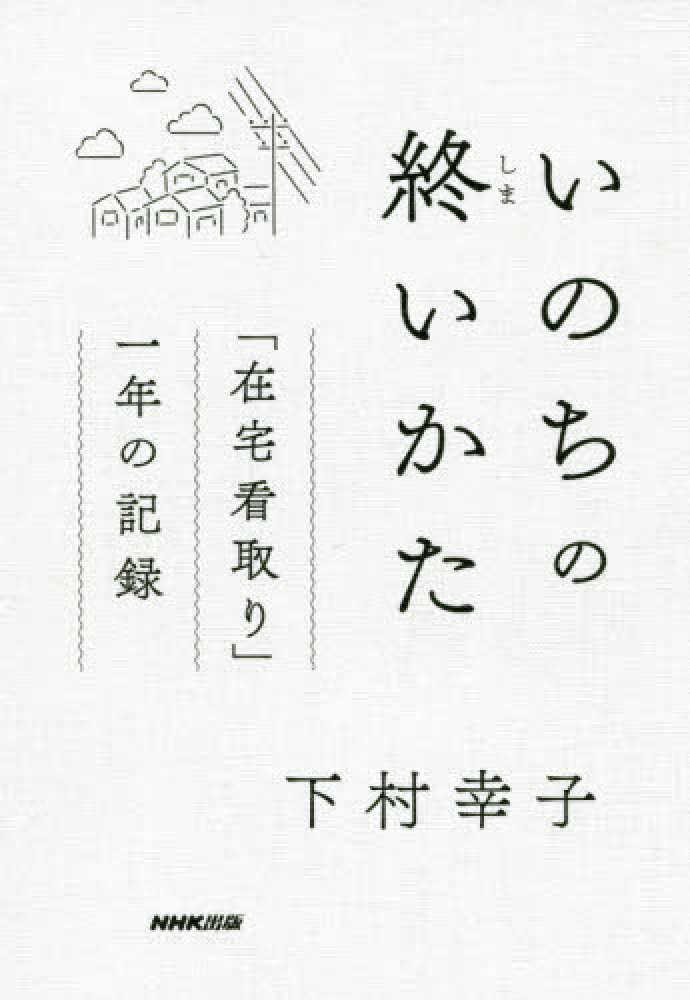 いのちの
終いかた
しま
「在宅看取り」
一年の記録
下村幸子
NHK出版